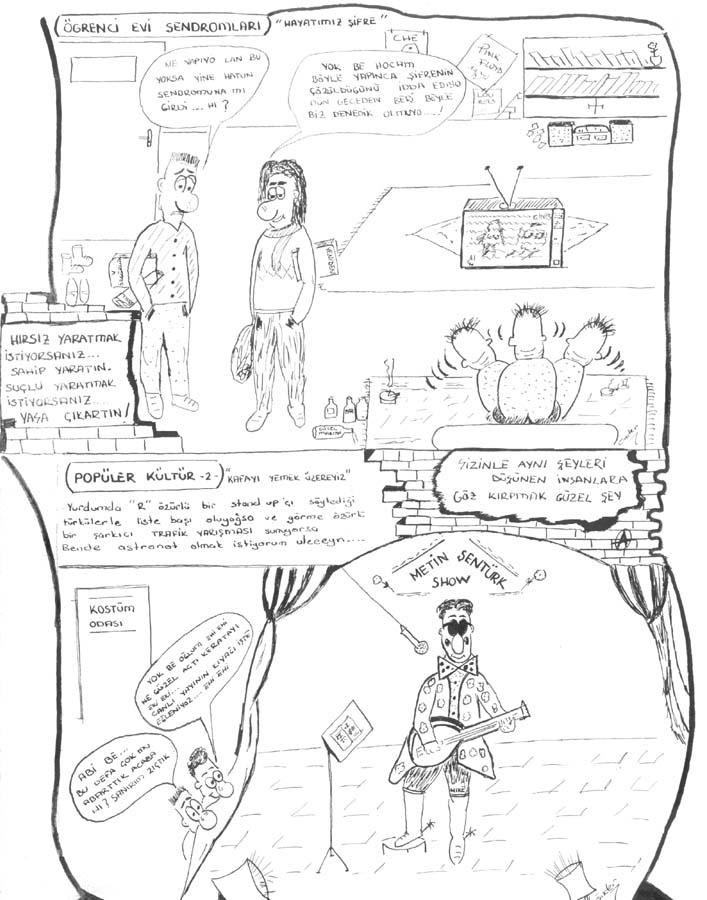 ÖĞRENCİ EVİ SENDROMLARI "HAYATIMIZ ŞİFRE"
NE YAPIYO LAN BU
YOKSA YİNE HATUN
SENDROMUNA MI
GİRDİ.... HI?
YOK BE HOCAM
BÖYLE YAPINCA ŞİFRENİN
ÇÖZÜLDÜĞÜNÜ İDDA EDİYO
DÜN GECEDEN BERİ BÖYLE
BİZ DENEDİK OLMUYO....!
CHE
PINK
FLOYD
HIRSIZ YARATMAK
İSTİYORSANIZ...
SAHİP YARATIN.
SUÇLU YARATMAK
İSTİYORSANIZ....
YASA ÇIKARTIN!
CINE5
GÜZEL
MARMARA
POPÜLER KÜLTÜR -2- "KAFAYI YEMEK ÜZEREYİZ"
SİZİNLE AYNI ŞEYLERİ
DÜŞÜNEN İNSANLARA
GÖZ KIRPMAK GÜZEL ŞEY
Yurdumda "R" özürlü bir stand up'çı söylediği
türkülerle liste başı oluyoğsa ve görme özürlü
bir şarkıcı TRAFİK YARIŞMASI sunuyorsa
Bende astronot olmak istiyorum uleceyn....
METİN ŞENTÜRK
SHOW
KOSTÜM
ODASI
YOK BE OĞLUM EHİ EHİ
NE GÜZEL AÇTI KERATAYI
CANLI YAYININ KIYAĞI İŞTE
EĞLENİYOZ.... EHİ EHİ
ABİ BE...
BU DEFA ÇOK MU
ABARTTIK ACABA
HI? SANIRIM ZIÇTIK
NIKE